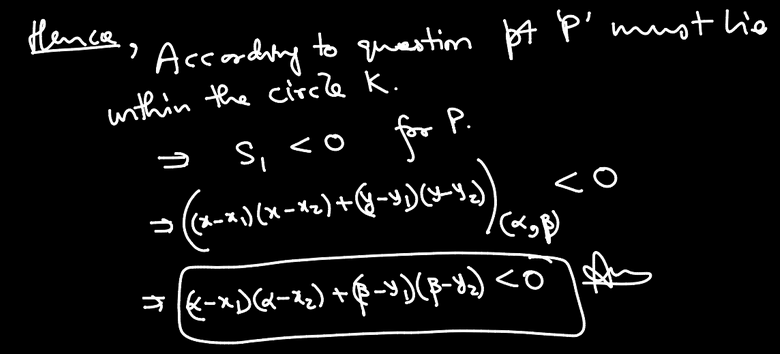 Hence, According to question pt 'P' must lie
within the circle K.
⇒ S₁ < 0 for P.
⇒ ((x-x₁)(x-x₂)+(y-y₁)(y-y₂))₍α,β₎ < 0
⇒ (α-x₁)(α-x₂)+(β-y₁)(β-y₂) < 0 Ans